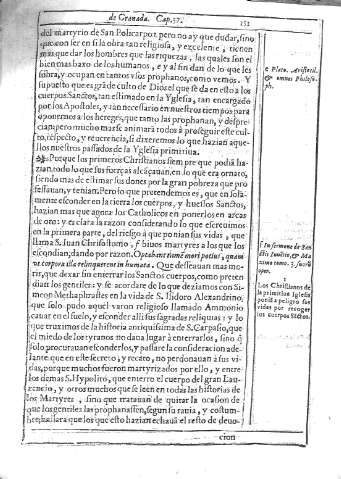 de Granada. Cap. 37. 151
del martyrio de San Policarpo: pero no ay que dudar, sino
que con ser en si la obra tan religiosa, y excelente, tienen
mas que dar los hombres que las riquezas, las quales son el
bien mas baxo de los humanos, e y al fin dan de lo que les
sobra, y ocupan en tantos vsos prophanos, como vemos. Y
supuesto que es grã de culto de Dios el que se da en esto a los
cuerpos Sanctos, tan estimado en la Yglesia, tan encargado
por los Apostoles, y tan necessario en nuestros tiempos para
oponernos a los hereges, que tanto las prophanan, y despre
cian, pero mucho mas se animarà todos à proseguir este cul-
to, respecto, y reuerencia, si dixeremos lo que hazian aque-
llos nuestros passados de la Yglesia primitiua.
Porque los primeros Christianos siempre que podiã ha-
zian, todo lo que sus fuerças alcãçauan, en lo que era ornato,
siendo mas de estimar sus dones por la gran pobreza que pro
fessauan, y tenian. Pero lo que pretendemos es, que en sola-
mente esconder en la tierra los cuerpos, y huessos Sanctos,
hazian mas que agora los Catholicos en ponerlos en arcas
de oro: y es clara la razon considerando lo que escreuimos
en la primera parte, del riesgo à que poniã sus vidas, que
llama S. Iuan Chrisostomo, f biuos martyres a los que les
escondian, dando por razon. Optabant namq́; mori potius, quam
vt corpora illa relinquerent in humata. Que desseauan mas mo-
rir, que dexar sin enterrar los Sanctos cuerpos, como preten-
dian los gentiles: y se acordare de lo que deziamos con Si-
meon Methaphrastes en la vida de S. Isidoro Alexandrino,
que solo pudo aquel varon religioso llamado Ammonio
cauar en el suelo, y esconder alli sus sagradas reliquias: y lo
que truximos de la historia antiquissima de S. Carpasio, que
el miedo de los tyranos no daua lugar à enterrarlos, sino q̃
solo procurauan esconderlos, y passar la consideracion ade
lante: que en este secreto, y recato, no perdonauan à sus vi-
das, porque muchos fueron martyrizados por ello, y entre
los demas S. Hypolito, que enterro el cuerpo del gran Lau-
rencio, y otros muchos que se leen en todas las historias de
los Martyres, sino que tratauan de quitar la ocasion de
que los gentiles las prophanassen, segun su rauia, y costum-
bre, hallara que los que esto hazian echauã el resto de deuo-
cion
e Plato. Aristotil.
& omnes Philoso-
ph.
Los Christianos de
la primitiua Yglesia
poniã à peligro sus
vidas por recoger
los cuerpos Sãctos.